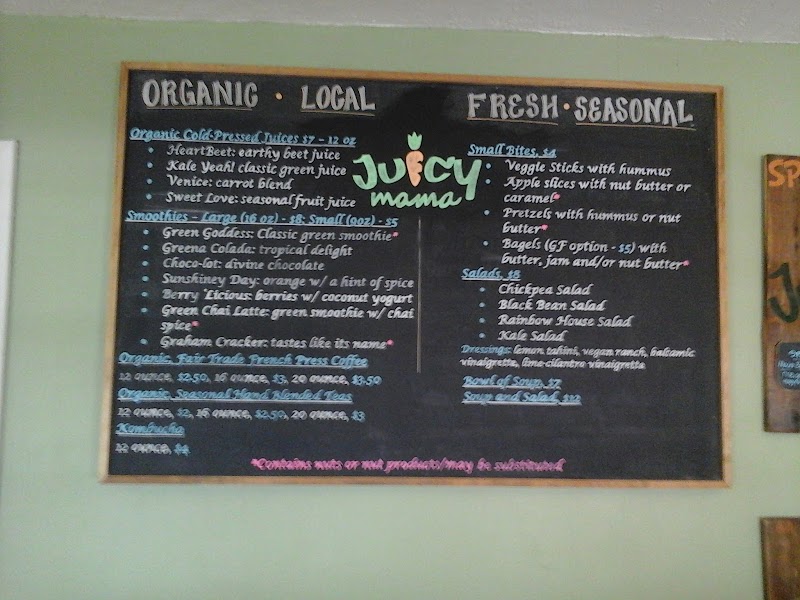 ORGANIC · LOCAL
FRESH · SEASONAL
Organic Cold-Pressed Juices $7 - 12 oz
HeartBeet: earthy beet juice
Kale Yeah! classic green juice
Venice: carrot blend
Sweet Love: seasonal fruit juice
Smoothies - Large (16 oz) - $8; Small (9oz) - $5
Green Goddess: Classic green smoothie*
Greena Colada: tropical delight
Choco-lot: divine chocolate
Sunshiney Day: orange w/ a hint of spice
Berry 'Licious: berries w/ coconut yogurt
Green Chai Latte: green smoothie w/ chai
spice*
Graham Cracker: tastes like its name*
Organic, Fair Trade French Press Coffee
12 ounce, $2.50, 16 ounce, $3, 20 ounce, $3.50
Organic, Seasonal Hand Blended Teas
12 ounce, $2, 16 ounce, $2.50, 20 ounce, $3
Kombucha
12 ounce, $4
Juicy
mama
Small Bites, $4
Veggie Sticks with hummus
Apple slices with nut butter or
caramel*
Pretzels with hummus or nut
butter*
Bagels (GF option - $5) with
butter, jam and/or nut butter*
Salads, $8
Chickpea Salad
Black Bean Salad
Rainbow House Salad
Kale Salad
Dressings: lemon tahini, vegan ranch, balsamic
vinaigrette, lime-cilantro vinaigrette
Bowl of Soup, $7
Soup and Salad, $12
*Contains nuts or nut products/may be substituted
SP
J